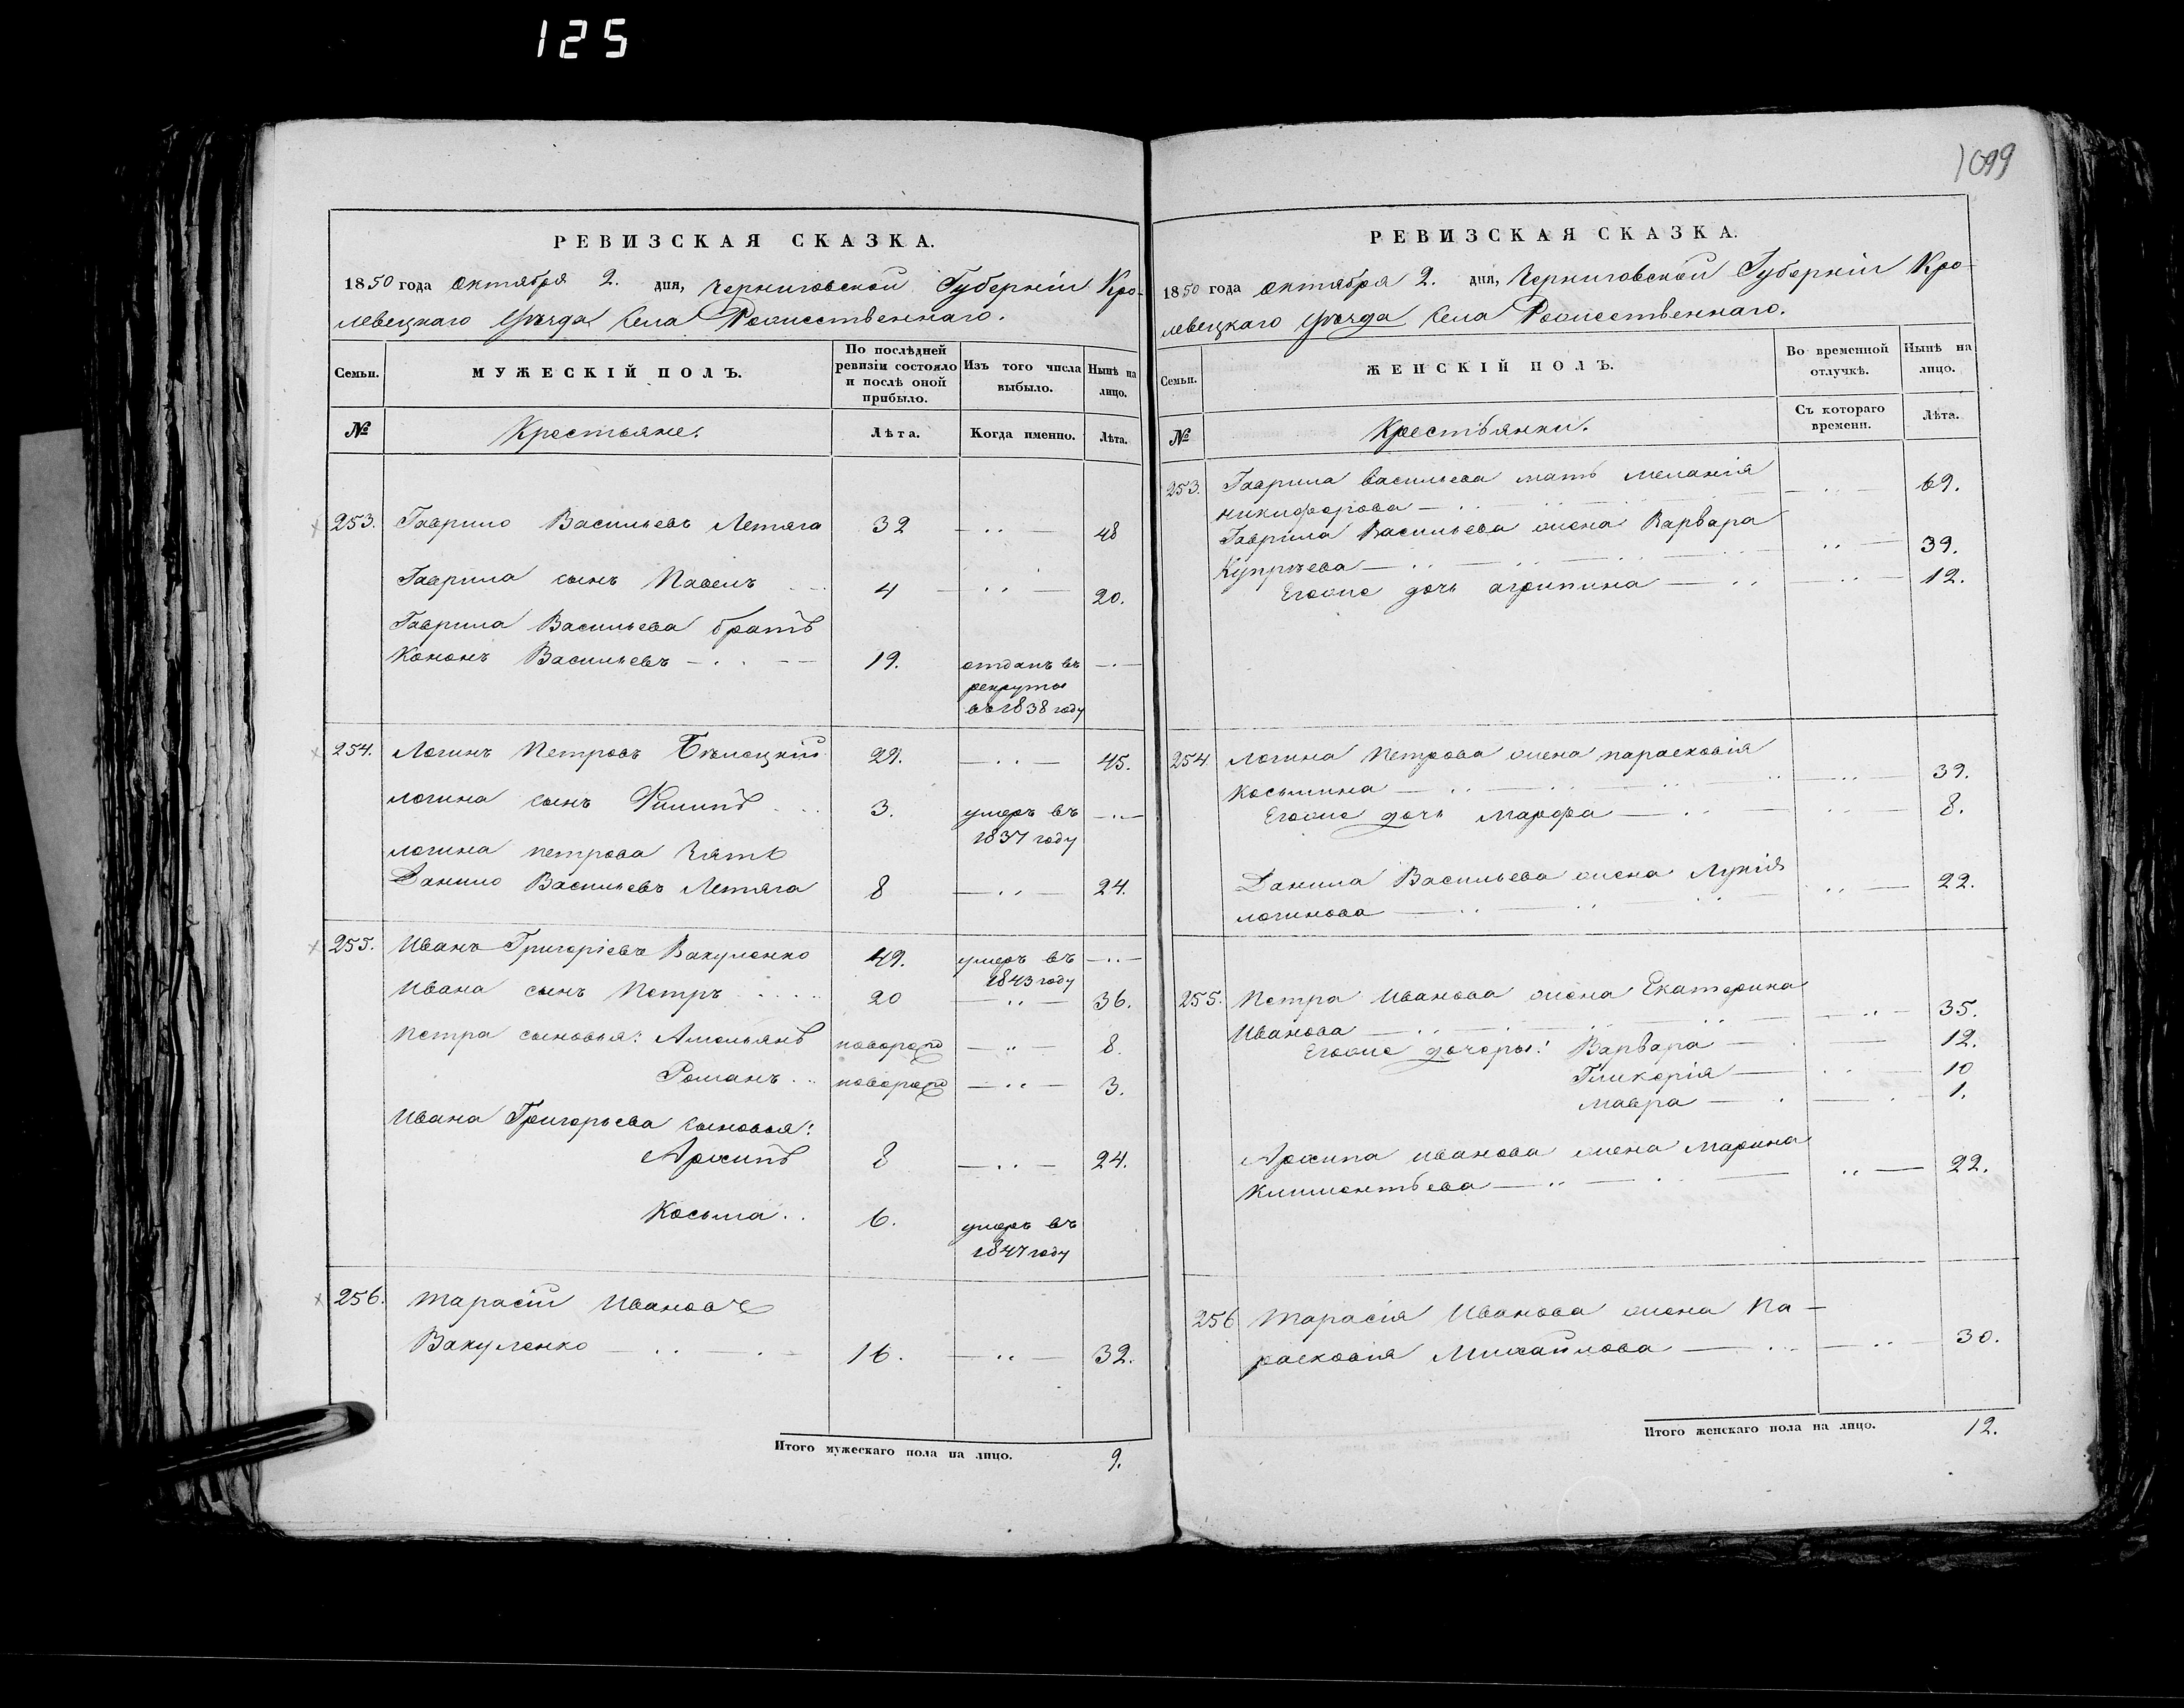 125
1099
РЕВИЗСКАЯ СКАЗКА.
1850 года Октября 2. дня, Черниговской Губерніи Кро-
левецкаго Уѣзда Села Рожественнаго.
Семьи.
МУЖЕСКІЙ ПОЛЪ.
По послѣдней ревизіи состояло и послѣ оной прибыло.
Изъ того числа выбыло.
Нынѣ на лицо.
№
Крестьяне.
Лѣта.
Когда именно.
Лѣта.
253. Гаврило Васильевъ Летяга 32 — .. — 48
Гаврила сынъ Павелъ 4 — .. — 20.
Гаврила Васильева братъ
Кононъ Васильевъ — . . — — 19. отданъ въ — . —
рекруты
въ 1838 году
254. Логинъ Петровъ Бѣлецкій 29. — .. — 45.
Логина сынъ Филипъ 3. умеръ въ — .. —
1837 году
Логина Петрова зять
Данило Васильевъ Летяга 8 — .. — 24.
255. Иванъ Григоріевъ Вакуленко 49. умеръ въ — .. —
1843 году
Ивана сынъ Петръ . . . . 20 — .. — 36.
Петра сыновья: Амельянъ новорожд — .. — 8.
Романъ . . новорожд — .. — 3.
Ивана Григорьева сыновья:
Архипъ 8 — .. — 24.
Косьма . . 6. умеръ въ
1847 году
256. Тарасій Ивановъ
Вакуленко — . . — . — 16. — .. — 32.
Итого мужескаго пола на лицо. 9.
РЕВИЗСКАЯ СКАЗКА.
1850 года Октября 2. дня, Черниговской Губерніи Кро-
левецкаго Уѣзда Села Рожественнаго.
Семьи.
ЖЕНСКІЙ ПОЛЪ.
Во временной отлучкѣ.
Нынѣ на лицо.
№
Крестьянки.
Съ котораго времени.
Лѣта.
253. Гаврила Васильева мать Меланія
Никифорова — .. — .. — 69.
Гаврила Васильева жена Варвара
Купрѣева — .. — .. — 39.
Егоже дочь Агрипина — .. — .. — 12.
254. Логина Петрова жена Парасковія
Косьмина — .. — .. — 39.
Егоже дочь Марфа — .. — .. — 8.
Данила Васильева жена Лукія
Логинова — .. — .. — 22.
255. Петра Иванова жена Екатерина
Иванова — .. — .. — 35.
Егоже дочеры: Варвара — . — 12.
Гликерія — . . — 10
Мавра — . — . — 1.
Архипа Иванова жена Марина
Климентьева — .. — . — .. — 22.
256 Тарасія Иванова жена Па-
расковія Михайлова — .. — .. — 30.
Итого женскаго пола на лицо. 12.